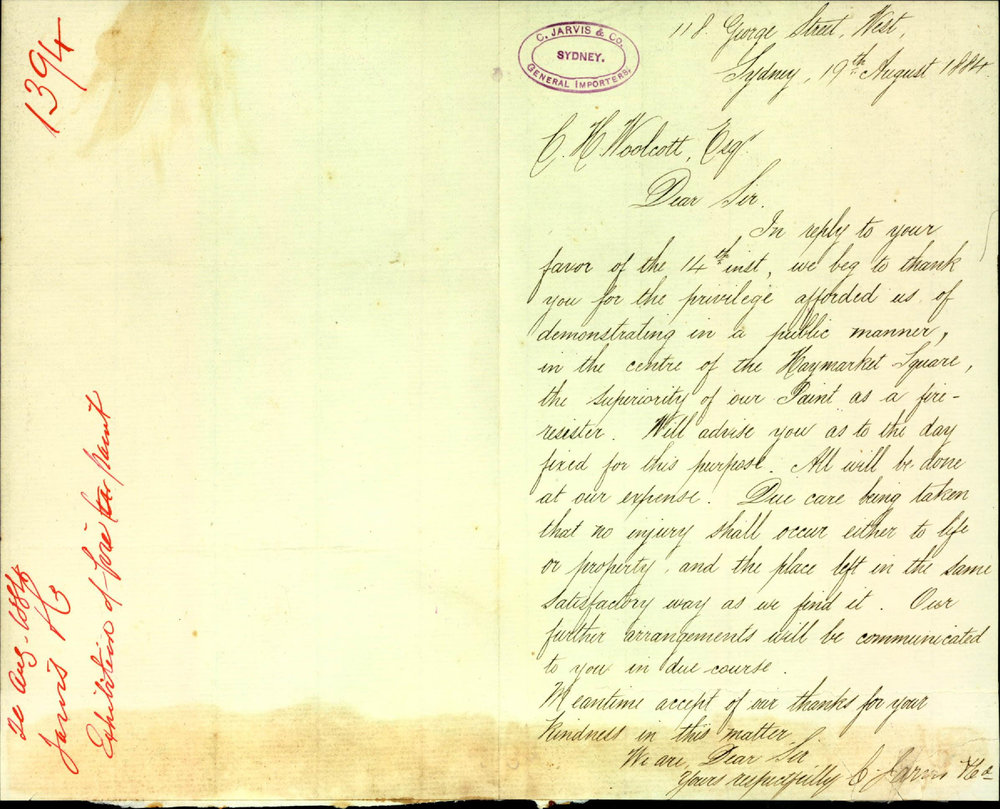 1394
20 Aug. 1884
Jarvis & Co
Exhibition of fire paint
C. JARVIS & Co.
SYDNEY.
GENERAL IMPORTERS.
118 George Street, West,
Sydney, 19th August 1884.
C. H. Woolcott, Esqr
Dear Sir.
In reply to your
favor of the 14th inst, we beg to thank
you for the privilege afforded us of
demonstrating in a public manner,
in the centre of the Haymarket Square,
the superiority of our Paint as a fire-
resister. Will advise you as to the day
fixed for this purpose. All will be done
at our expense. Due care being taken
that no injury shall occur either to life
or property, and the place left in the same
satisfactory way as we find it. Our
further arrangements will be communicated
to you in due course.
Meantime accept of our thanks for your
kindness in this matter.
We are, Dear Sir
Yours respectfully C. Jarvis & Co